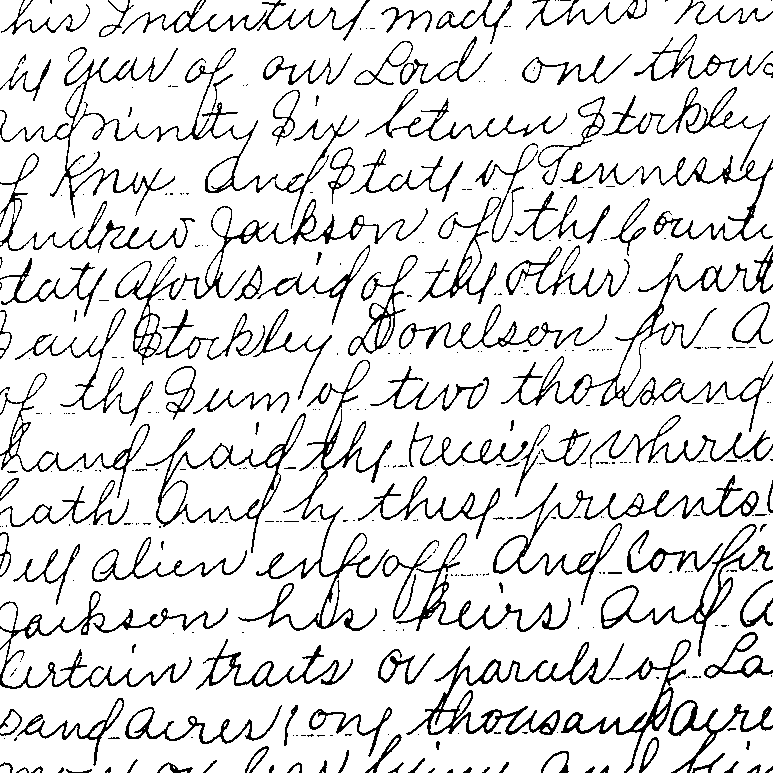 his Indenture made this nin
he Year of our Lord one thous
and ninety Six between Stockley
of Knox and State of Tennessee
Andrew Jackson of the Count
State aforesaid of the other part
Said Stockley Donelson for a
of the Sum of two thousand
hand paid the receipt whereo
hath and by these presents
Sell alien enfeoff and confir
Jackson his heirs and a
certain tracts or parcels of La
sand acres; one thousand acre
more or less being and bein